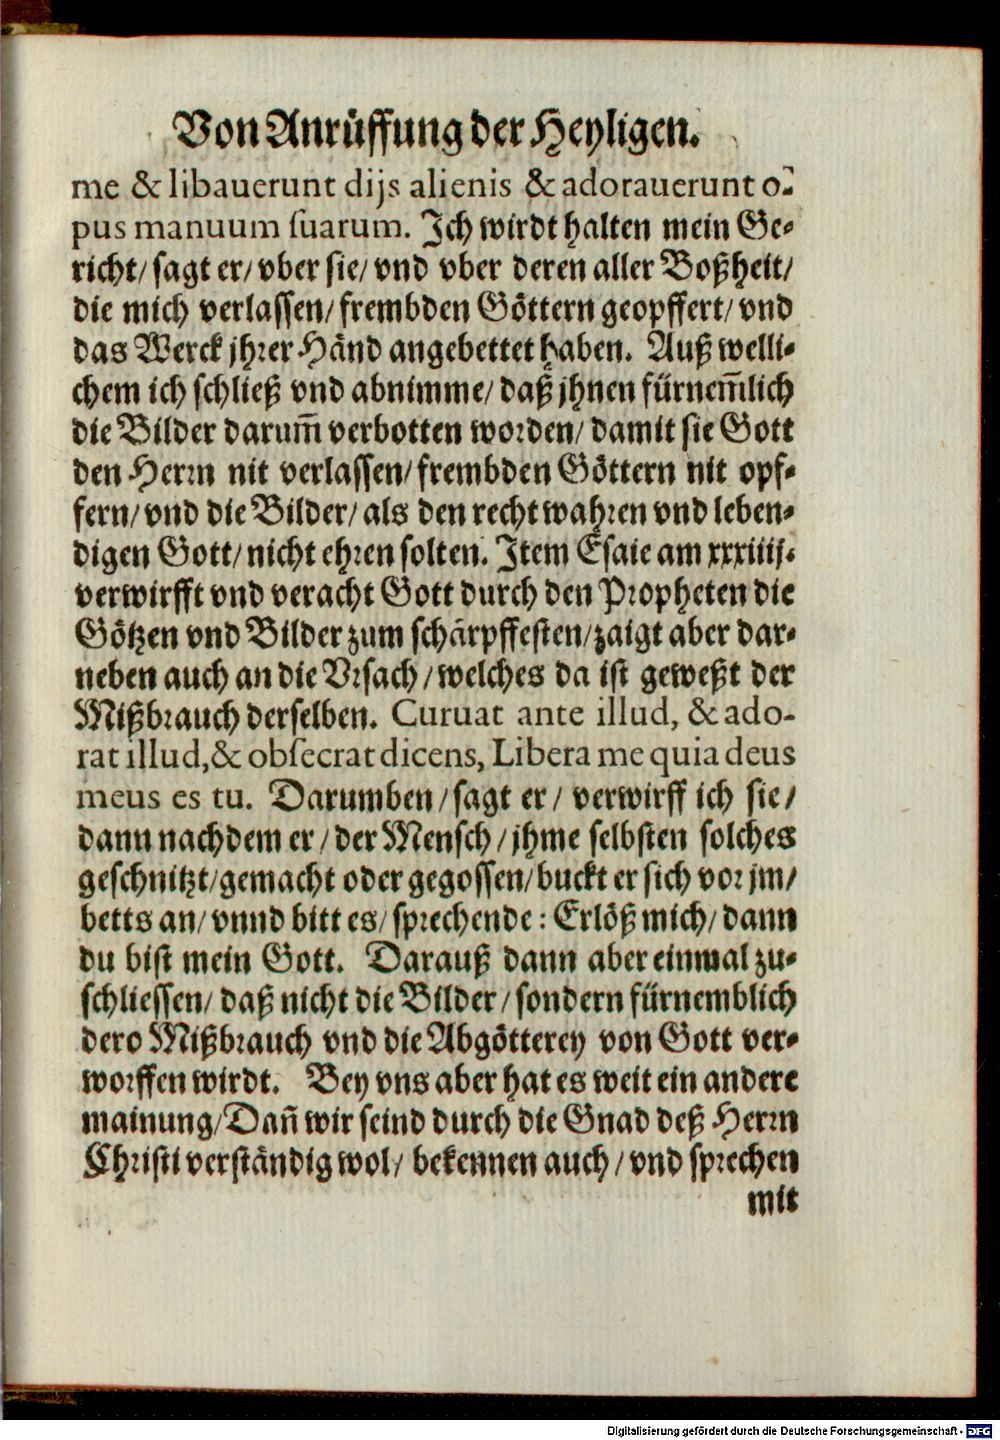 Von Anrüffung der Heyligen.
me & libauerunt dijs alienis & adorauerunt o-
pus manuum ſuarum. Ich wirdt halten mein Ge-
richt/ sagt er/ vber sie/ vnd vber deren aller Boßheit/
die mich verlassen/ frembden Göttern geopffert/ vnd
das Werck jhrer Händ angebettet haben. Auß welli-
chem ich schließ vnd abnimme/ daß jhnen fürnem̃lich
die Bilder darum̃ verbotten worden/ damit sie Gott
den Herrn nit verlassen/ frembden Göttern nit opf-
fern/ vnd die Bilder/ als den recht wahren vnd leben-
digen Gott/ nicht ehren solten. Item Esaie am xxxiiij.
verwirfft vnd veracht Gott durch den Propheten die
Götzen vnd Bilder zum schärpffesten/ zaigt aber dar-
neben auch an die Vrsach/ welches da ist geweßt der
Mißbrauch derselben. Curuat ante illud, & ado-
rat illud, & obſecrat dicens, Libera me quia deus
meus es tu. Darumben/ sagt er/ verwirff ich sie/
dann nachdem er/ der Mensch/ jhme selbsten solches
geschnitzt/ gemacht oder gegossen/ buckt er sich vor jm/
betts an/ vnnd bitt es/ sprechende: Erlöß mich/ dann
du bist mein Gott. Darauß dann aber einmal zu-
schliessen/ daß nicht die Bilder/ sondern fürnemblich
dero Mißbrauch vnd die Abgötterey von Gott ver-
worffen wirdt. Bey vns aber hat es weit ein andere
mainung/ Dañ wir seind durch die Gnad deß Herrn
Christi verständig wol/ bekennen auch/ vnd sprechen
mit
Digitalisierung gefördert durch die Deutsche Forschungsgemeinschaft - DFG